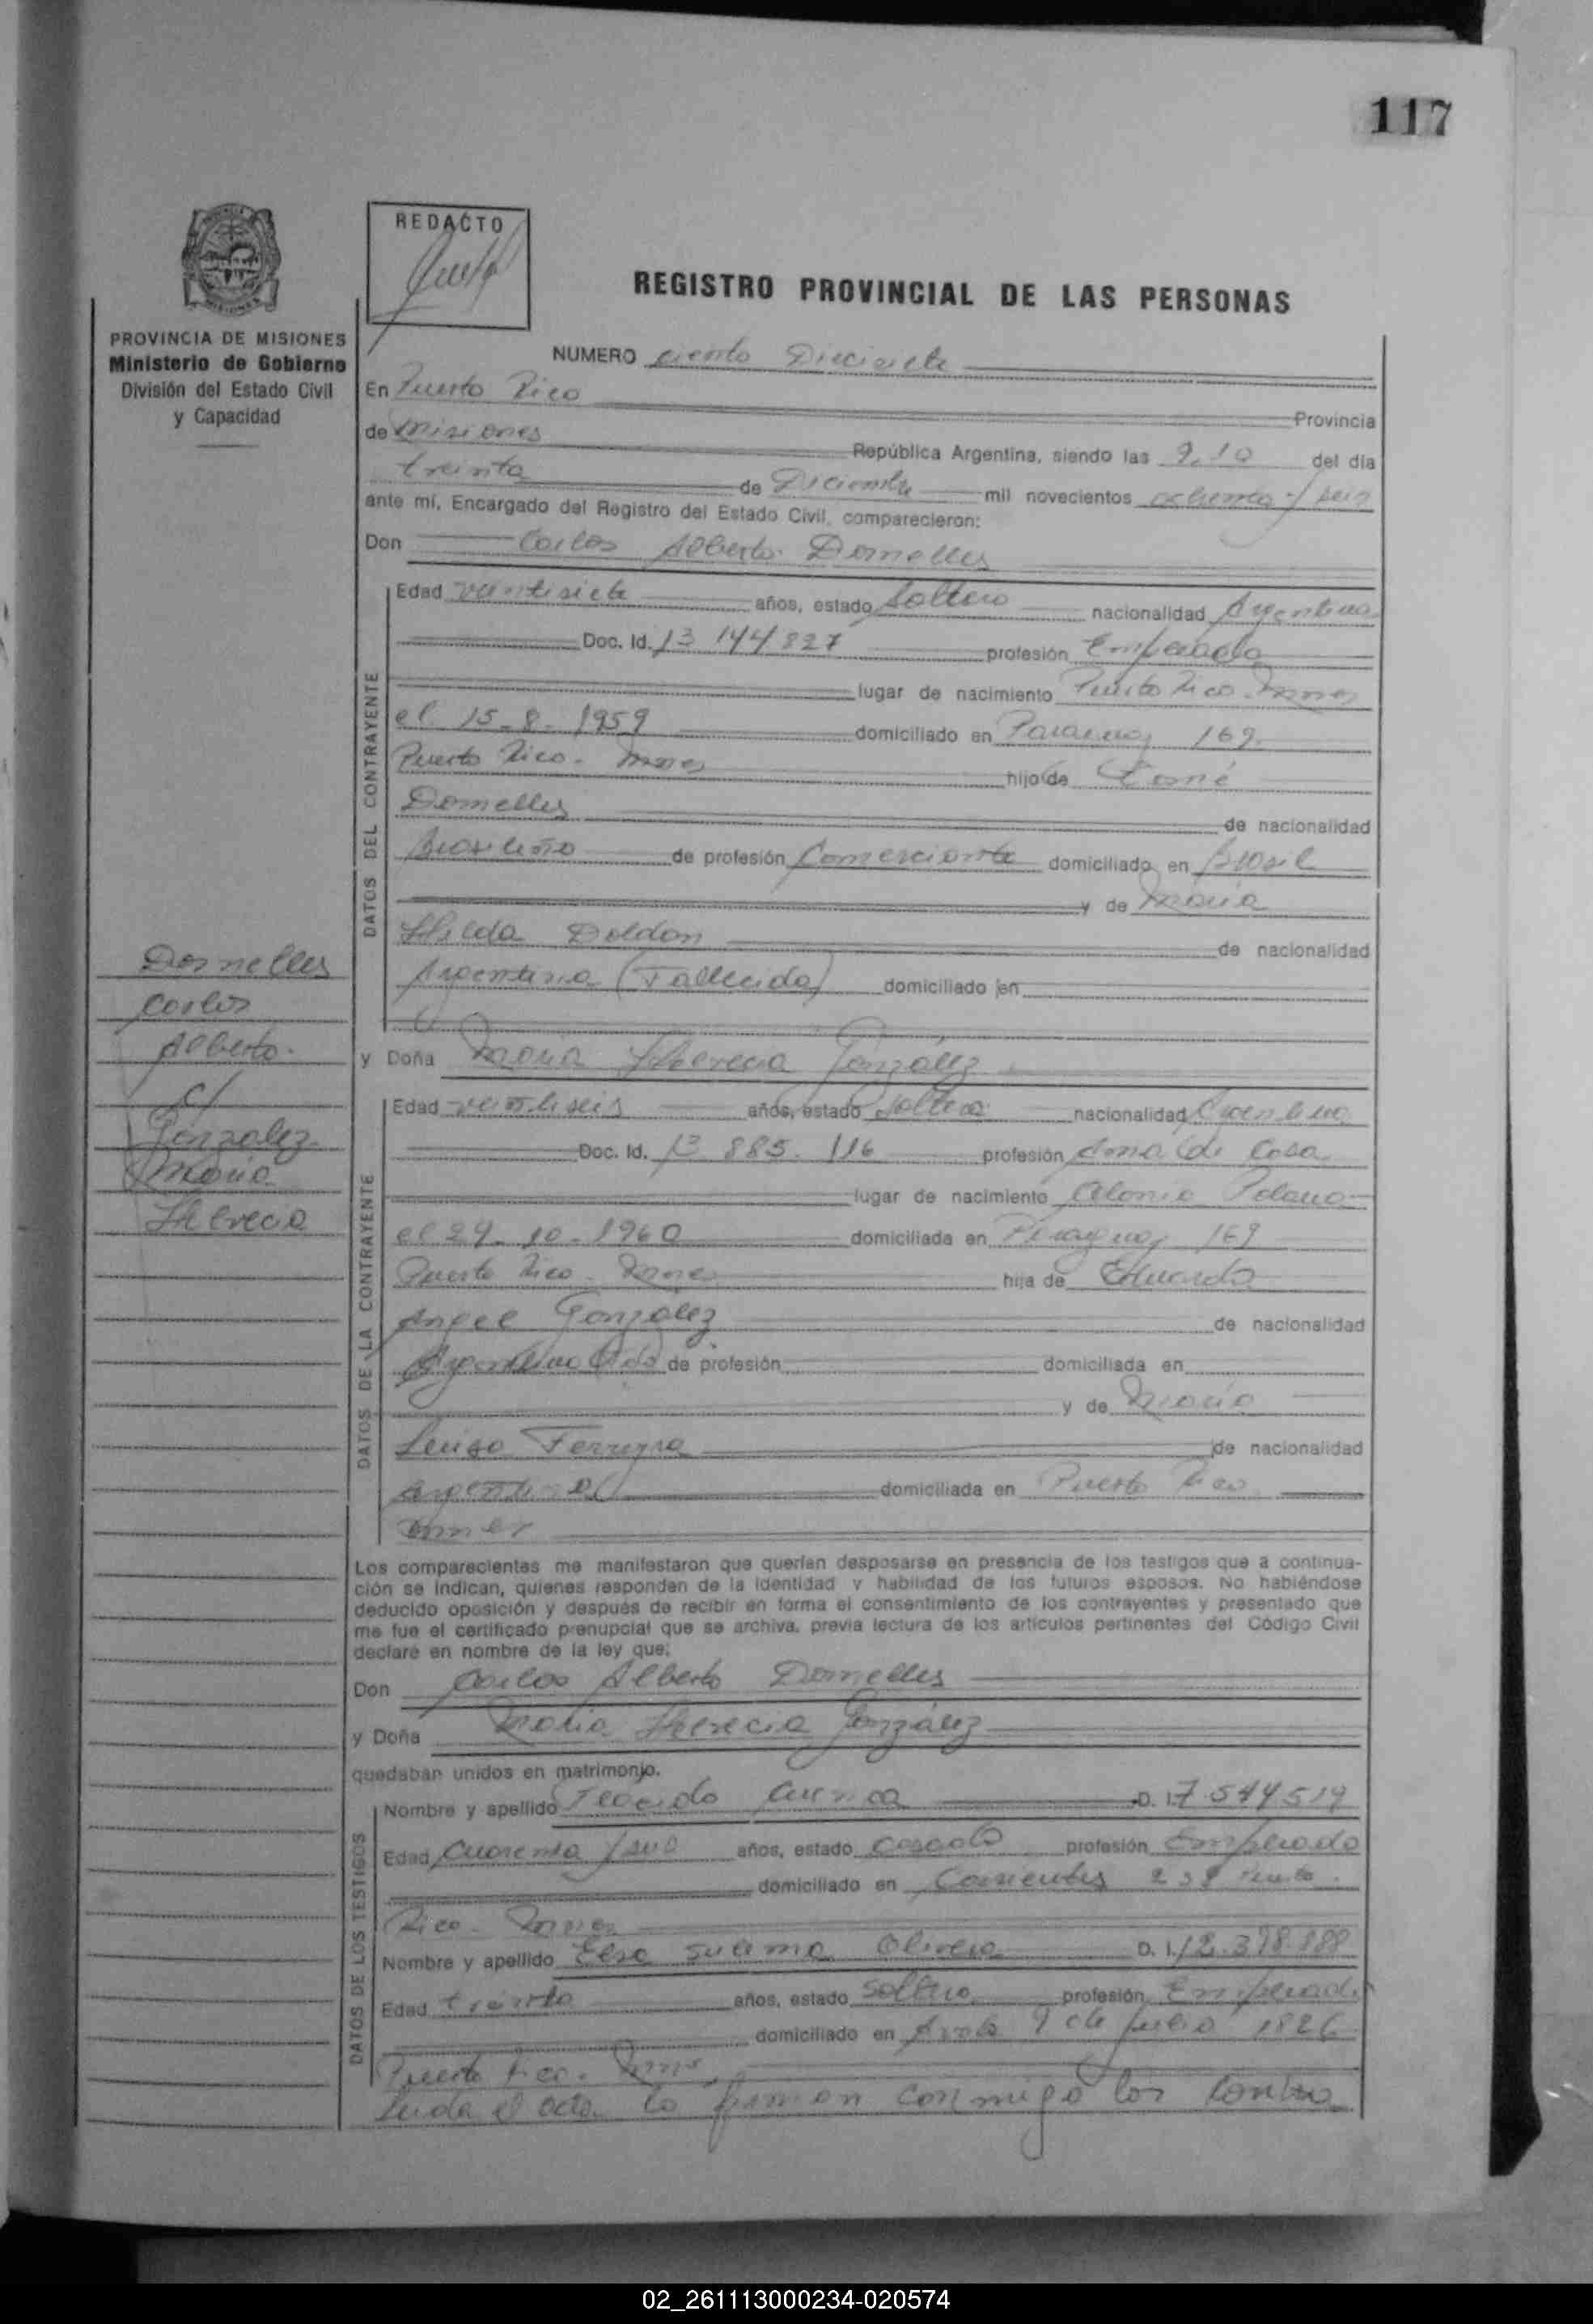 117
REDACTO
REGISTRO PROVINCIAL DE LAS PERSONAS
PROVINCIA DE MISIONES
Ministerio de Gobierno
División del Estado Civil
y Capacidad
NUMERO ciento Diecisiete
En Puerto Rico Provincia
de Misiones República Argentina, siendo las 9.10 del día
treinta de Diciembre mil novecientos ochenta y seis
ante mí, Encargado del Registro del Estado Civil, comparecieron:
Don Carlos Alberto Dornelles
DATOS DEL CONTRAYENTE
Edad veintisiete años, estado Soltero nacionalidad Argentina
Doc. Id. 13 144 827 profesión Empleado
lugar de nacimiento Puerto Rico. Mnes
el 15-8-1959 domiciliado en Paraguay 169.
Puerto Rico. Mnes hijo de
Dornelles de nacionalidad
Brasileño de profesión Comerciante domiciliado en Brasil
y de Maria
Hilda Doldan de nacionalidad
Argentina (Fallecida) domiciliado en
Dornelles
Carlos
Alberto.
c/
González
Maria
Therecia
y Doña Maria Therecia González
DATOS DE LA CONTRAYENTE
Edad veintiseis años, estado Soltera nacionalidad Argentina
Doc. Id. 13 885. 116 profesión Ama de Casa
lugar de nacimiento Colonia Polana
el 24-10-1960 domiciliada en Paraguay 169
Puerto Rico - Mnes hija de Eduardo
Angel González de nacionalidad
Argentino de profesión domiciliada en
y de Maria
Luisa Ferreyra de nacionalidad
Argentina domiciliada en Puerto Rico
Mnes
Los comparecientes me manifestaron que querían desposarse en presencia de los testigos que a continua-
ción se indican, quienes responden de la identidad y habilidad de los futuros esposos. No habiéndose
deducido oposición y después de recibir en forma el consentimiento de los contrayentes y presentado que
me fue el certificado prenupcial que se archiva, previa lectura de los artículos pertinentes del Código Civil
declaré en nombre de la ley que:
Don Carlos Alberto Dornelles
y Doña Maria Therecia González
quedaban unidos en matrimonio.
DATOS DE LOS TESTIGOS
Nombre y apellido D. I. 7.544519
Edad Cuarenta y años, estado Casado profesión Empleado
domiciliado en Corrientes Puerto
Rico. Mnes
Nombre y apellido Elsa Sulema Olivera D. I. 12.398.188
Edad treinta años, estado Soltera profesión Emplead
domiciliado en Avda 9 de Julio 1826
Puerto Rico. Mnes.
Leida el acta lo firman conmigo los contra
02_261113000234-020574